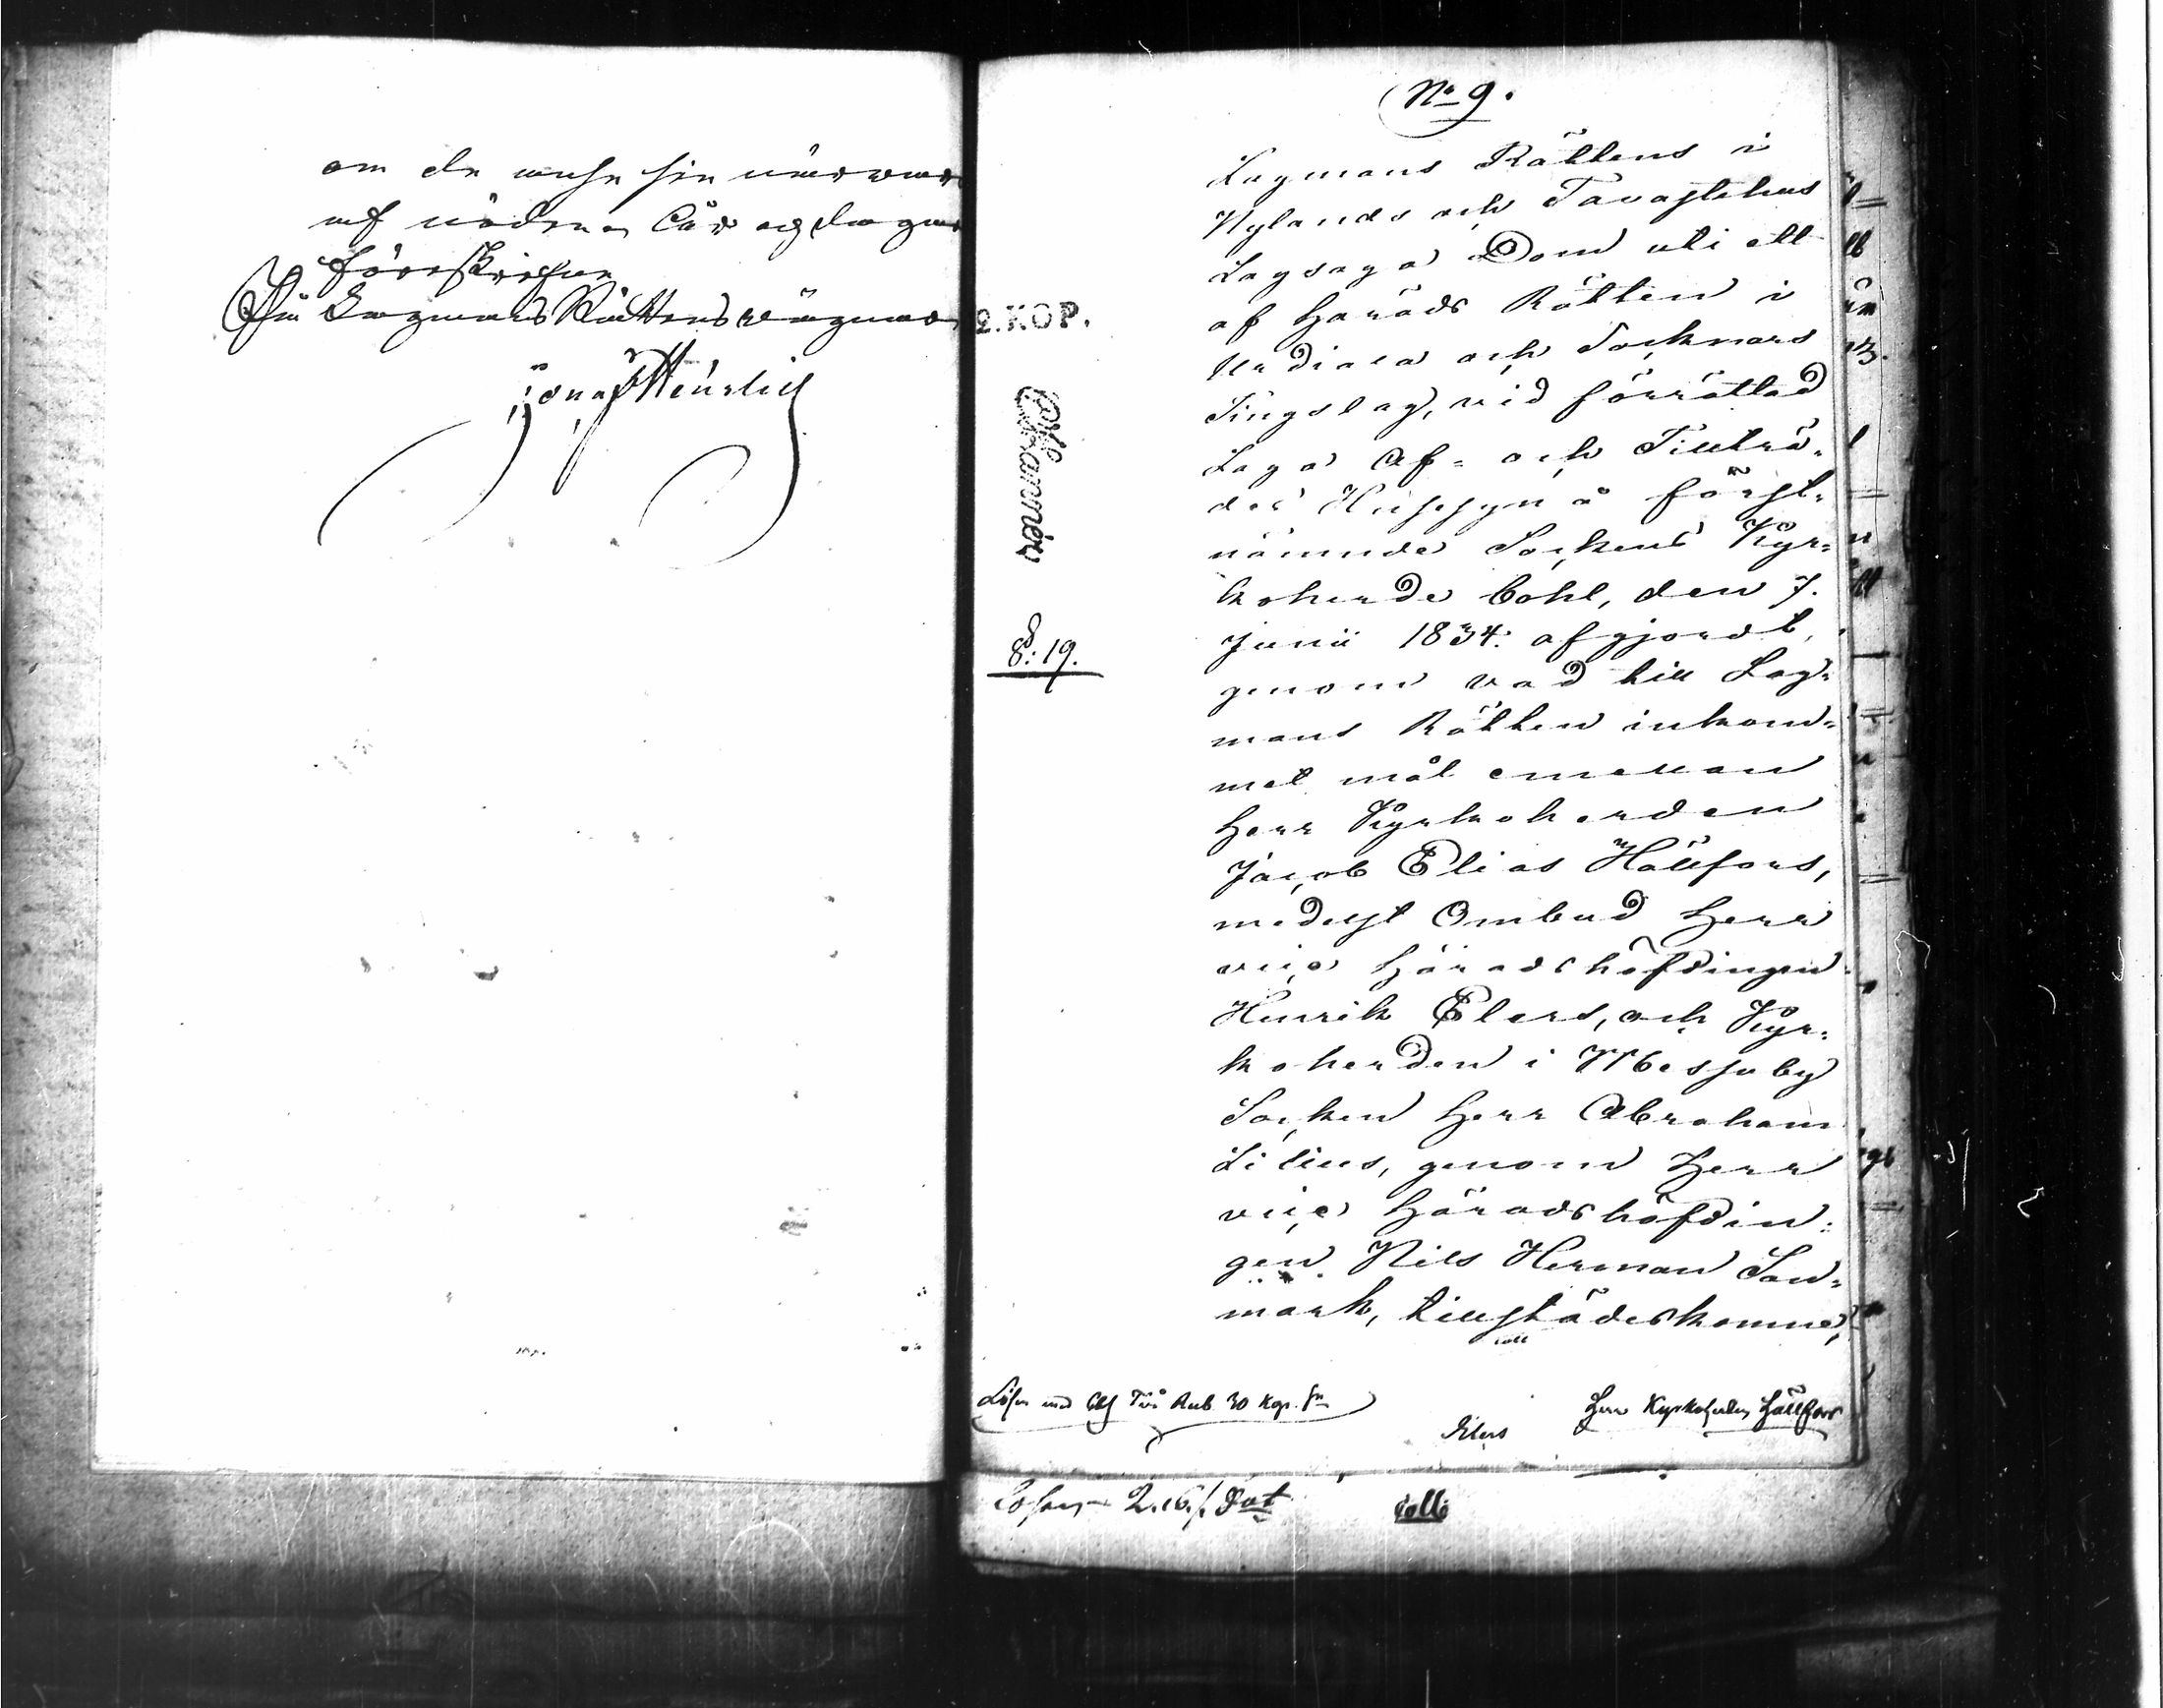 om de
af
föreskrifver
På Lagmans Rättens wägnar
Jonas
No 9.
Lagmans Rättens i
Nylands och Tavastehus
Lagsaga Dom uti ett
af Härads Rätten i
Urdiala och Socknars
Tingslag, vid förrättad
Laga Af- och Tillträ-
des Hussyn å först-
nämnde Sockens Kyr-
koherde Bohl, den 7.
Junii 1834. afgjordt,
genom vad till Lag-
mans Rätten inkom-
met mål emellan
Herr Kyrkoherden
Jacob Elias Hällfors,
medelst Ombud Herr
vice Häradshöfdingen
Henrik Elers, och Kyr-
koherden i Messuby
Socken Herr Abraham
Lilius, genom Herr
vice Häradshöfdin-
gen Nils Herman Son-
mark, tillstädeskomne,
coll
2. KOP.
8:19.
Lösen med Två Rub. 30 Kop. Sr
Elers
Herr Kyrkoherden Hällfors
Lösen 2.16.
Coll: